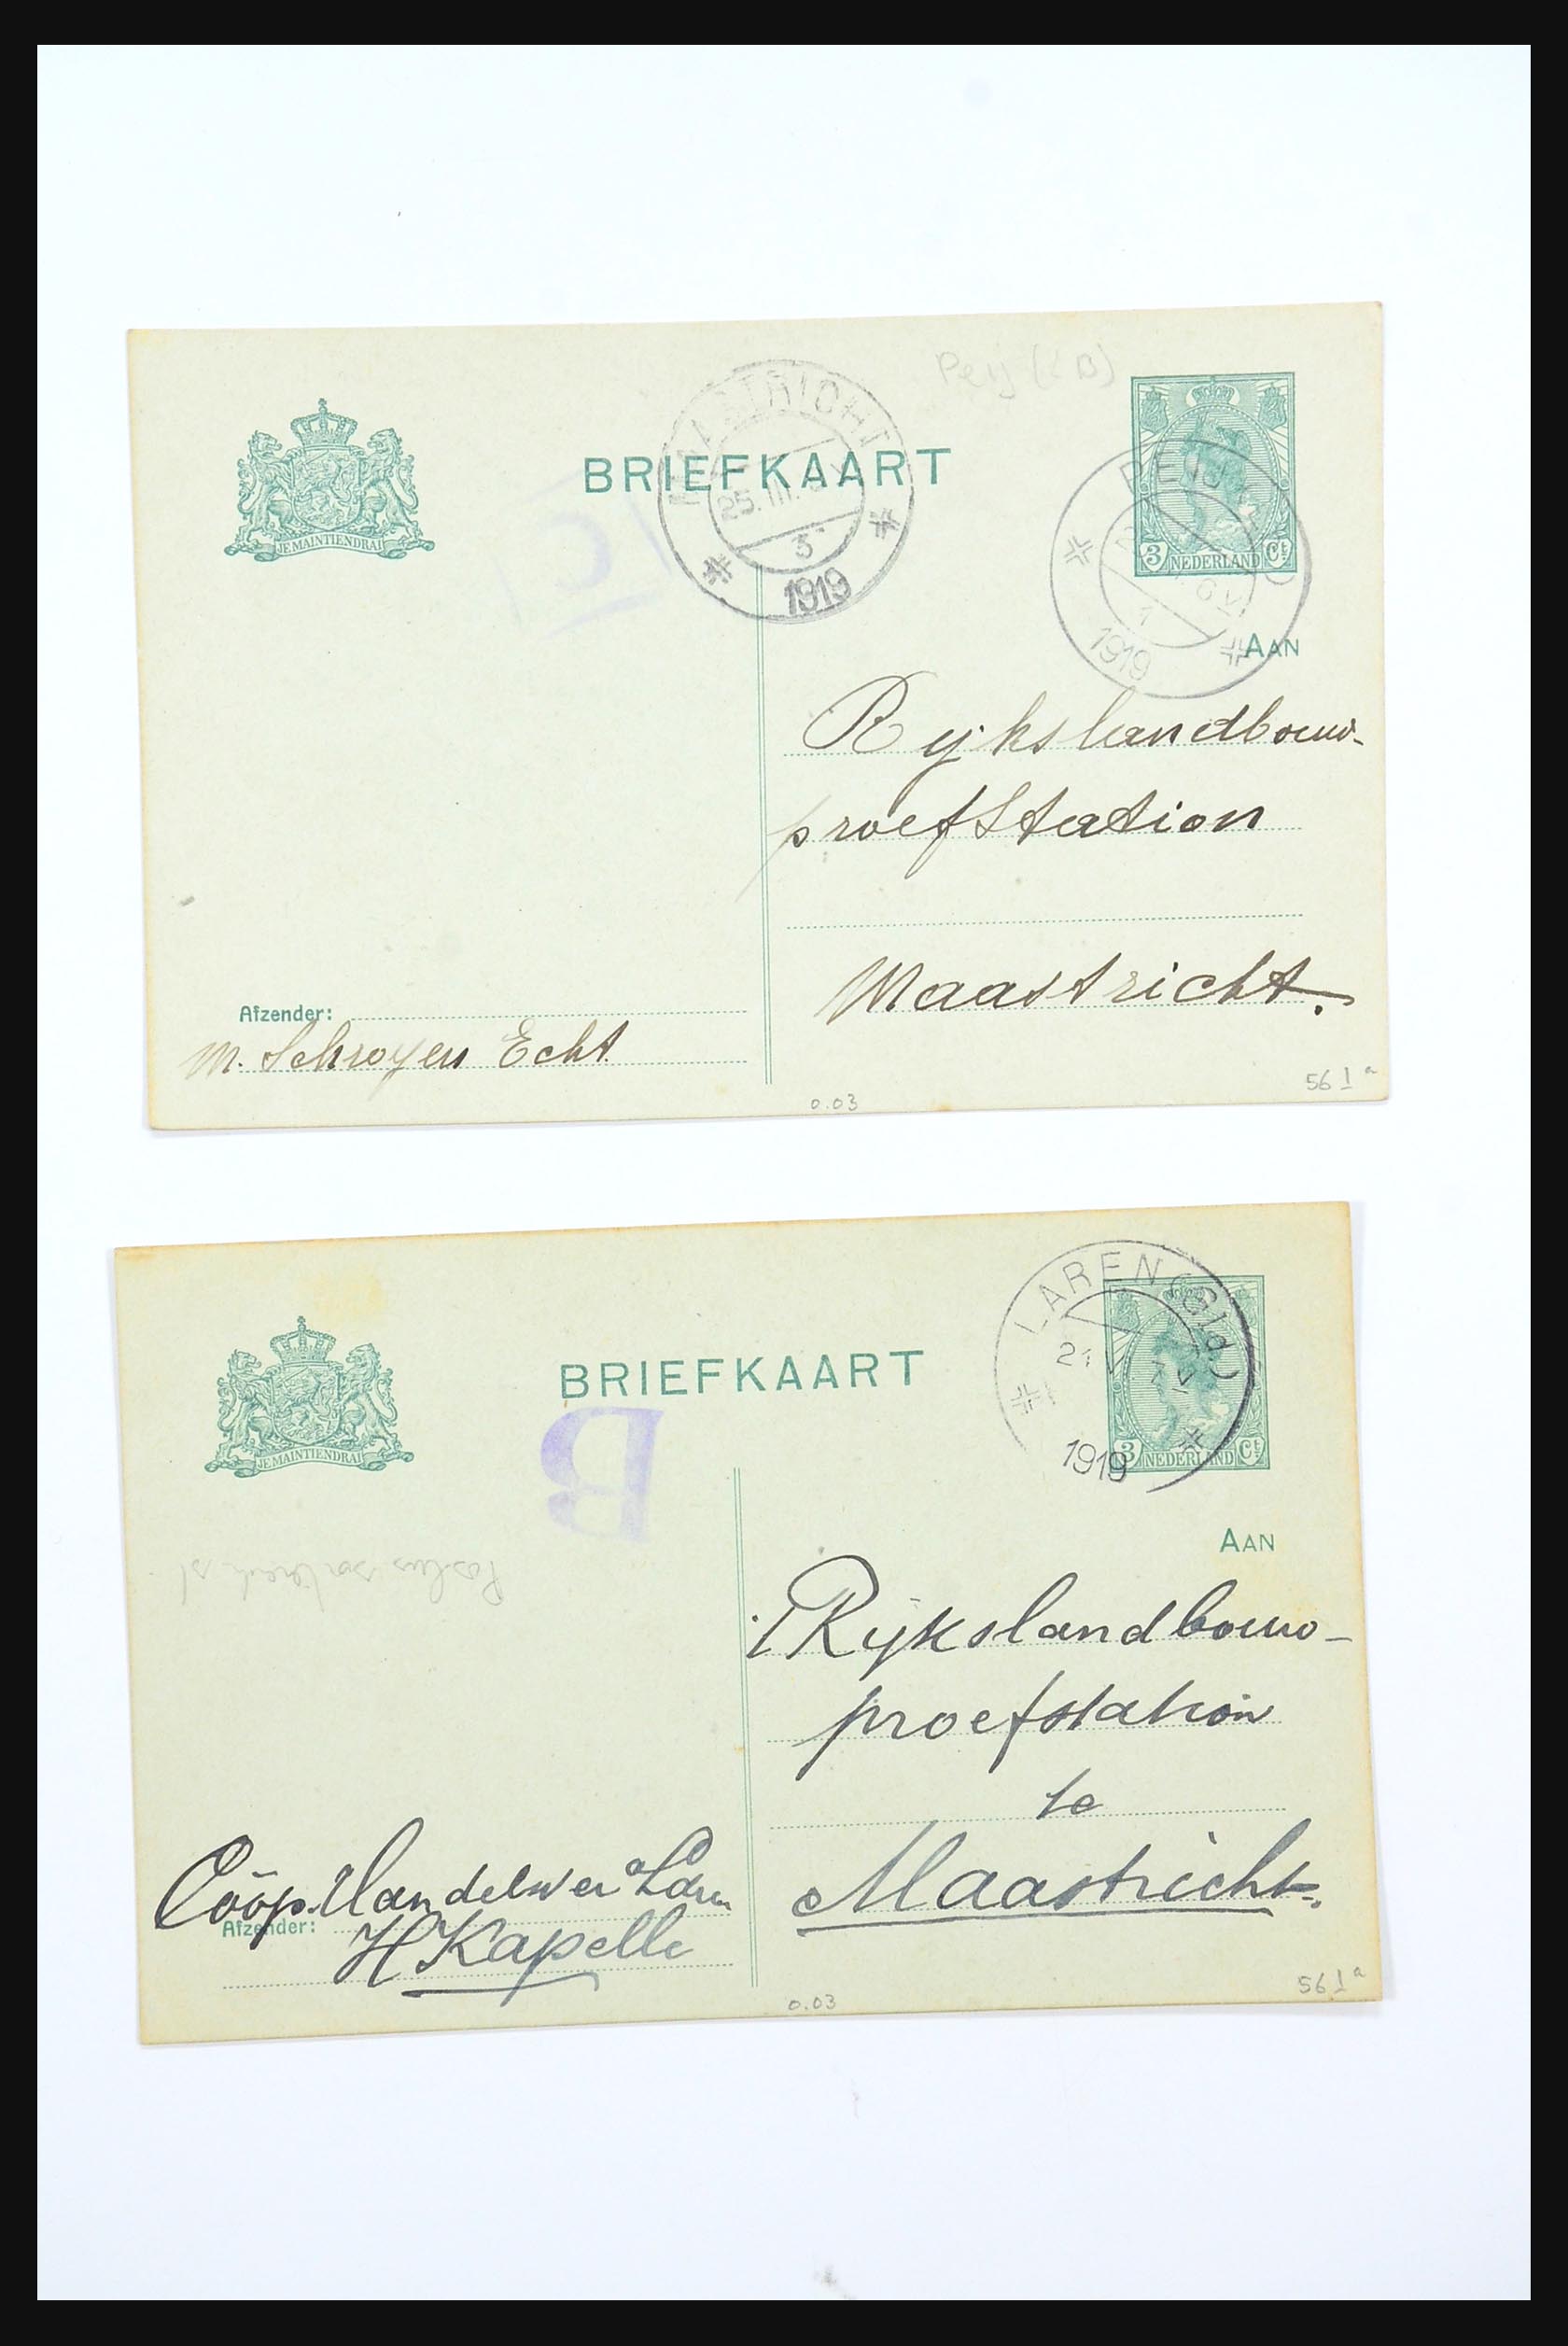 Peij (LB)
MAASTRICHT
25.III.
3
1919
BRIEFKAART
JE MAINTIENDRAI
PEIJ
1
1919
3 NEDERLAND Ct
AAN
Rijkslandbouw-
proefstation
Maastricht.
Afzender:
M. Schroyen Echt
0.03
56 Iª
LAREN (Gld.)
21
1919
BRIEFKAART
JE MAINTIENDRAI
3 NEDERLAND Ct
B
AAN
Rijkslandbouw-
proefstation
te
Maastricht.
Coöp. Handelsver Laren
Afzender:
H Kapelle
0.03
56 Iª